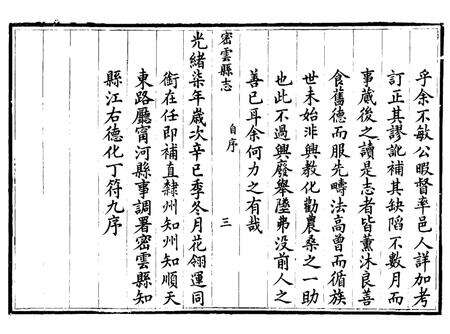 乎余不敏公暇督率邑人詳加考
訂正其謬訛補其缺陷不數月而
事蕆後之讀是志者皆薰沐良善
食舊德而服先疇法高曾而循族
世未始非興教化勸農桑之一助
也此不過興廢舉墜弗没前人之
善已耳余何力之有哉
密雲縣志
自序
三
光緒柒年歲次辛巳季冬月花翎運同
銜在任即補直隸州知州知順天
東路廳甯河縣事調署密雲縣知
縣江右德化丁符九序